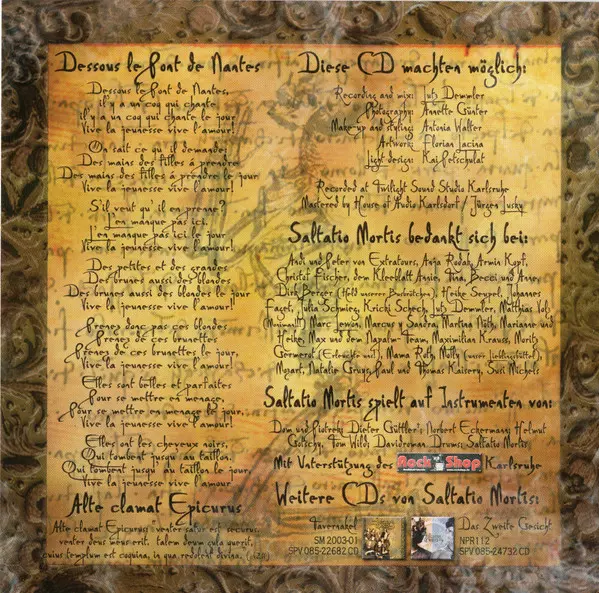 Dessous le Pont de Nantes
Dessous le Pont de Nantes,
il y a un coq qui chante
il y a un coq qui chante le jour
Vive la jeunesse vive l'amour!
On sait ce qu'il demande:
Des mains des filles á prendre
Des mains des filles á prendre le jour
Vive la jeunesse vive l'amour!
S'il veut qu'il en prenne?
L'en manque pas ici.
L'en manque pas ici le jour
Vive la jeunesse vive l'amour!
Des petites et des grandes
Des brunes aussi des blondes
Des brunes aussi des blondes le jour
Vive la jeunesse vive l'amour!
Prenez donc pas ces blondes
Prenez de ces brunettes
Prenez de ces brunettes le jour,
Vive la jeunesse vive l'amour!
Elles sont belles et parfaites
Pour se mettre en menage,
Pour se mettre en menage le jour,
Vive la jeunesse vive l'amour!
Elles ont les cheveux noirs,
Qui tombent jusqu' au taillon.
Qui tombent jusqu' au taillon le jour,
Vive la jeunesse vive l'amour!
Alte clamat Epicurus
Alte clamat Epicurus: venter satur est securus.
venter deus meus erit. talem deum gula querit,
cuius templum est coquina, in qua redolent divina.
Diese CD machten möglich:
Recording and mix: Jutz Demmler
Photography: Annette Günter
Make-up and styling: Antonia Walter
Artwork: Florian Jacina
Light design: Kai Petschulat
Recorded at Twilight Sound Studio Karlsruhe
Mastered by House of Audio Karlsdorf / Jürgen Lusky
Saltatio Mortis bedankt sich bei:
Andi und Peter von Extratours, Anja Rodak, Armin Kopf,
Christof Fischer, dem Kleeblatt Annie, Tina, Becci und Anne,
Dirk Berger (Held unserer Busbrötchen) Heike Seypel, Johannes
Fagel, Julia Schmieg, Kricki Scheck, Jutz Demmler, Matthias
Marc Jenion, Marcus & Sandra, Martina Nöth, Marianne und
Heike, Max und dem Napalm-Team, Maximilian Krauss, Moritz
Germerot (Erleuchte uns!), Mama Roth, Molly (unser Lieblingstüftel),
Mozart, Natalie Paul und Thomas Kaisery, Susi Michels
Saltatio Mortis spielt auf Instrumenten von:
Dom und Piotrek; Dieter Güttler; Norbert Eckermann; Helmut
Gotschy, Tom Wild; Davidroman Drums; Saltatio Mortis
Mit Unterstützung des Rock Shop Karlsruhe
Weitere CDs von Saltatio Mortis:
Tavernakel
SM 2003-01
SPV 085-22682 CD
Das Zweite Gesicht
NPR112
SPV 085-24732 CD